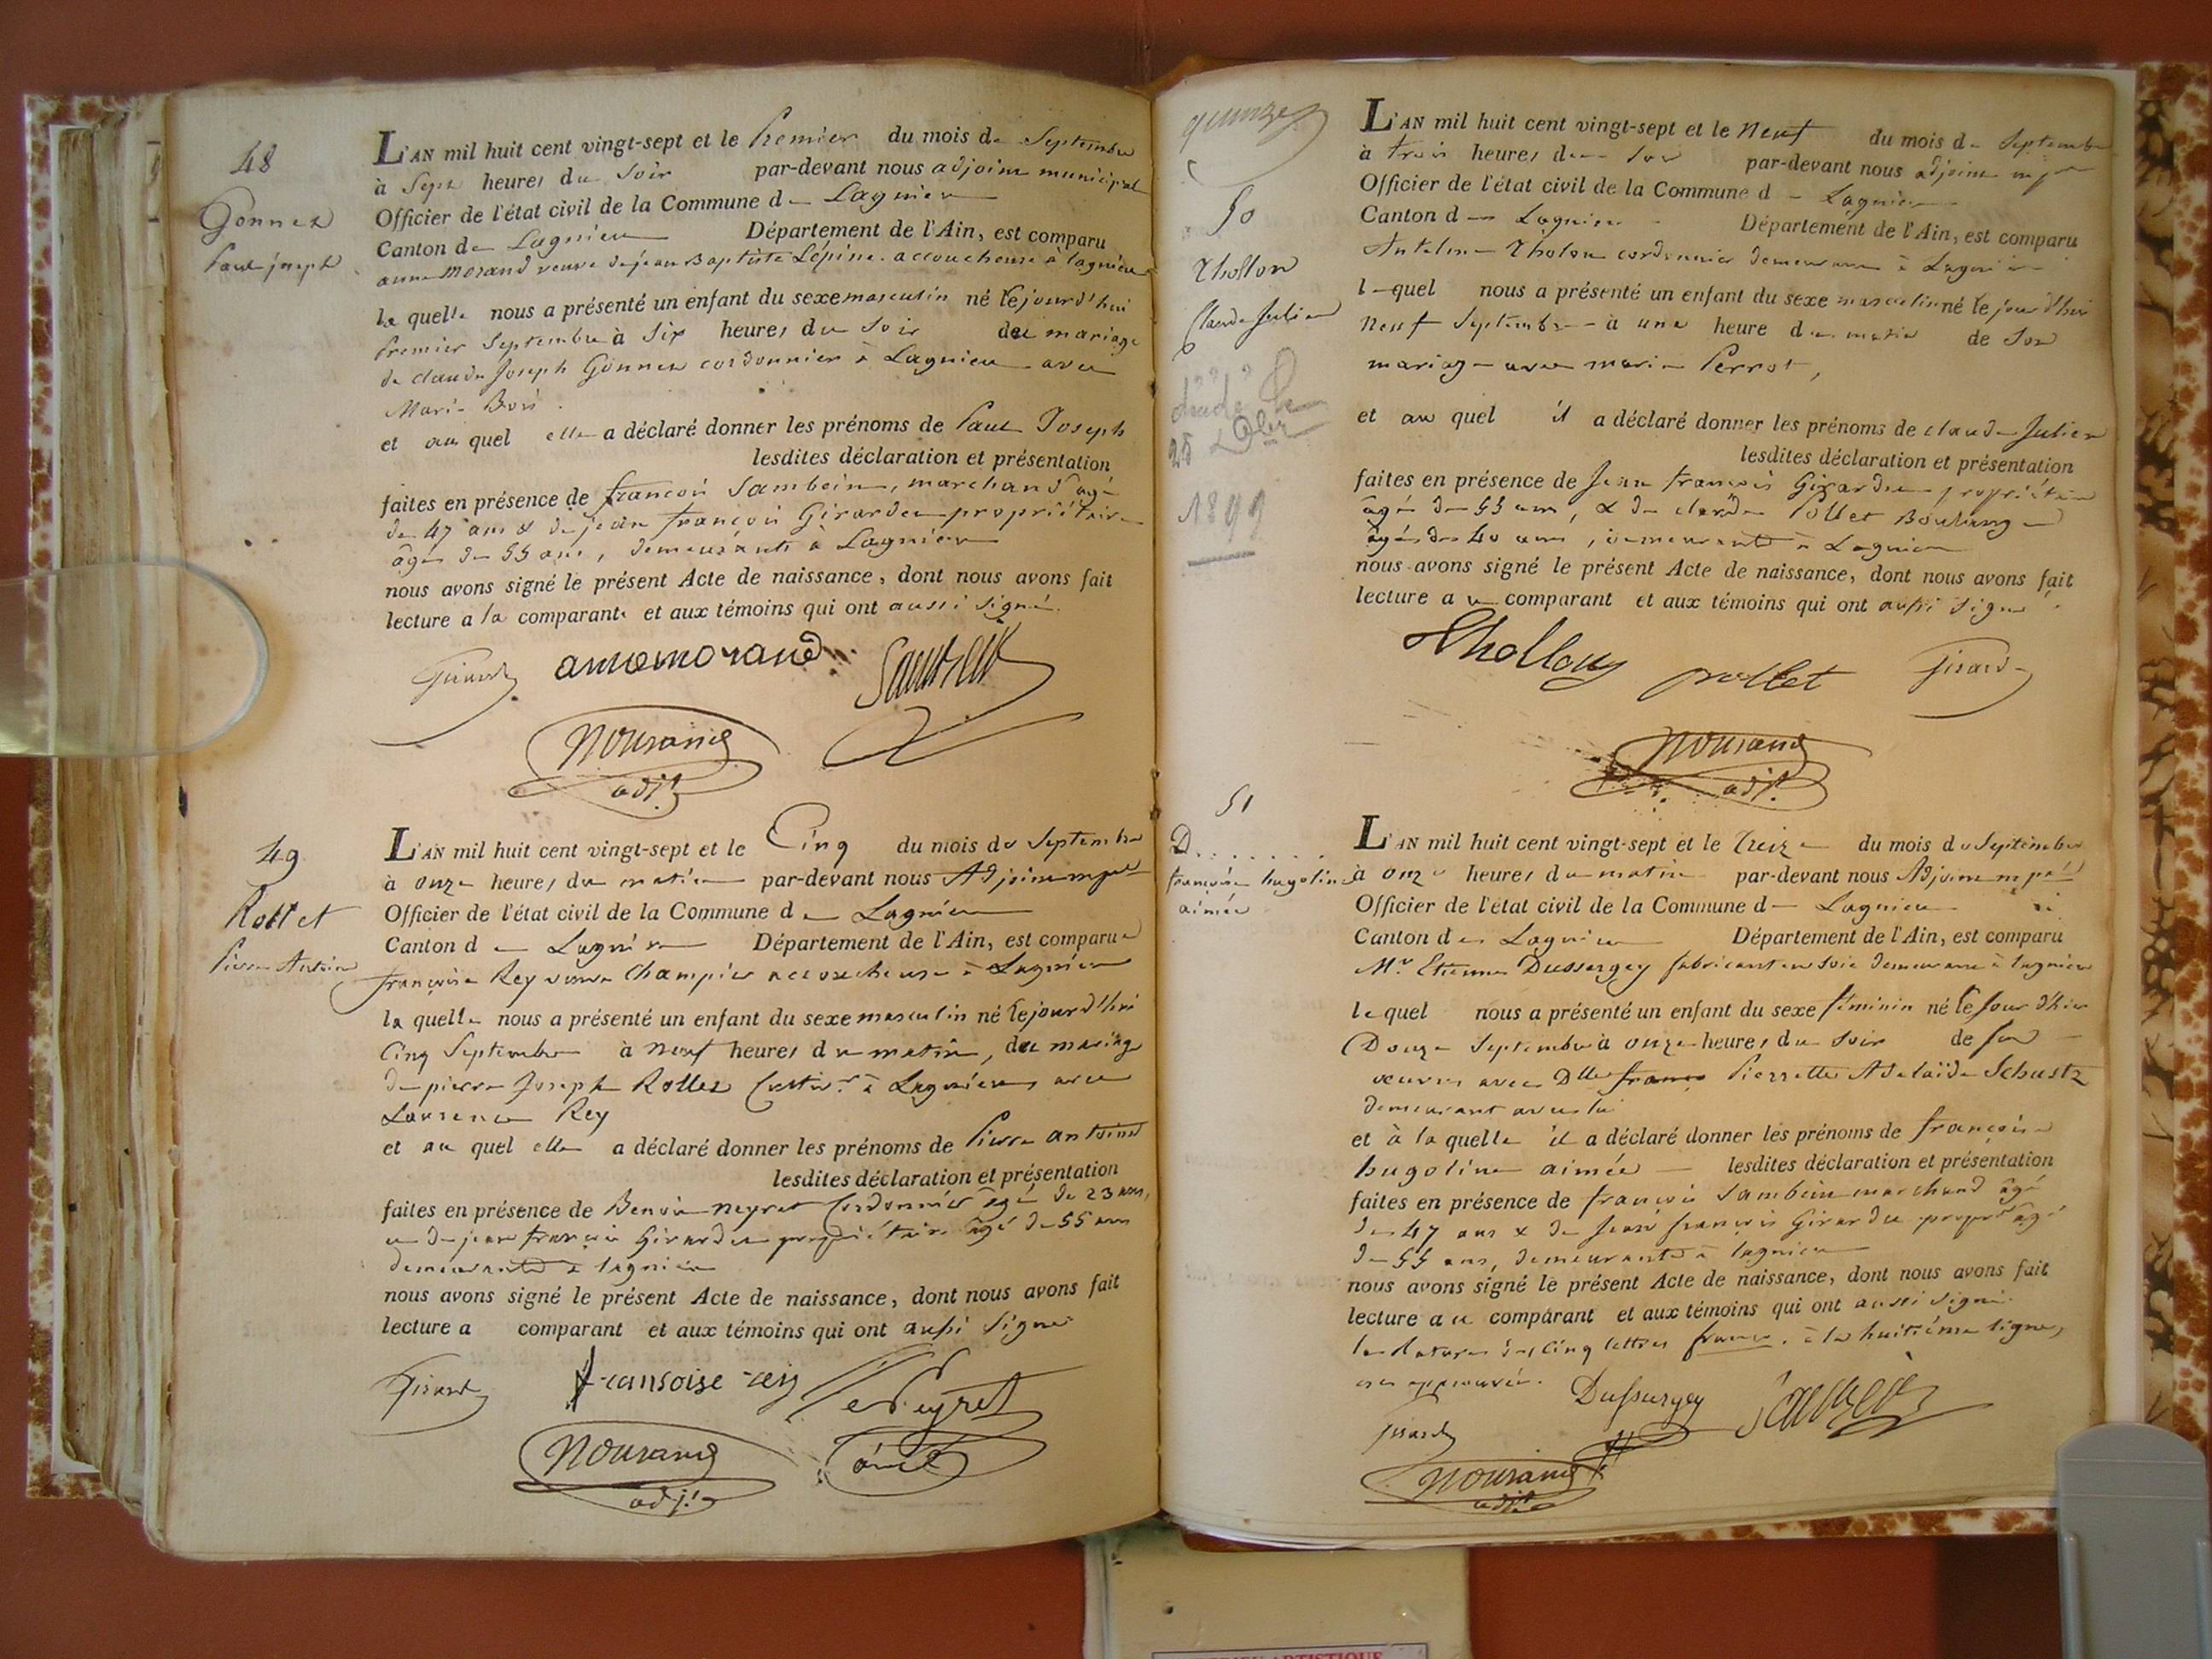 48
Gonnet
Paul joseph
L'AN mil huit cent vingt-sept et le Premier du mois de Septembre
à Sept heures du Soir par-devant nous adjoint municipal
Officier de l'état civil de la Commune de Lagnieu
Canton de Lagnieu Département de l'Ain, est comparu
anne Morand veuve de jean Baptiste Lépine accoucheuse à lagnieu
la quelle nous a présenté un enfant du sexe masculin né le jourd'hui
Premier Septembre à Six heures du Soir du mariage
de claude Joseph Gonnet cordonnier à Lagnieu avec
Marie Bon
et au quel elle a déclaré donner les prénoms de Paul Joseph
lesdites déclaration et présentation
faites en présence de françois Sambein, marchand agé
de 47 ans & de jean françois Girardet propriétaire
âgé de 55 ans, demeurants à Lagnieu
nous avons signé le présent Acte de naissance, dont nous avons fait
lecture a la comparante et aux témoins qui ont aussi signé.
Girard annemorand Sambein
Mourand
adjt
49
Rollet
Pierre Antoine
L'AN mil huit cent vingt-sept et le Cinq du mois de Septembre
à onze heures du matin par-devant nous Adjoint mpal
Officier de l'état civil de la Commune de Lagnieu
Canton de Lagnieu Département de l'Ain, est comparue
françoise Rey veuve Champier accoucheuse à Lagnieu
la quelle nous a présenté un enfant du sexe masculin né le jourd'hui
Cinq Septembre à neuf heures du matin, du mariage
de pierre Joseph Rollet à Lagnieu avec
Laurence Rey
et au quel elle a déclaré donner les prénoms de Pierre antoine
lesdites déclaration et présentation
faites en présence de Benoit neyret Cordonnier agé de 23 ans,
et de jean françois Girardet propriétaire âgé de 55 ans
demeurants à lagnieu
nous avons signé le présent Acte de naissance, dont nous avons fait
lecture a comparant et aux témoins qui ont aussi signé
Girard fransoise rey Neyret
Mourand
adjt
quinze
50
Thollon
Claude Julien
décédé le
28
1899
L'AN mil huit cent vingt-sept et le neuf du mois de Septembre
à trois heures de Soir par-devant nous adjoint mpal
Officier de l'état civil de la Commune de Lagnieu
Canton de Lagnieu Département de l'Ain, est comparu
Antelme Tholon cordonnier demeurant à Lagnieu
lequel nous a présenté un enfant du sexe masculin né le jourd'hui
neuf Septembre à une heure du matin de Son
mariage avec marie Perrot,
et au quel il a déclaré donner les prénoms de claude Julien
lesdites déclaration et présentation
faites en présence de Jean françois Girardet propriétaire
âgé de 55 ans, & de claude Pollet Boulanger
âgé de 40 ans, demeurants à Lagnieu
nous avons signé le présent Acte de naissance, dont nous avons fait
lecture au comparant et aux témoins qui ont aussi signé
Thollon pollet Girard
Mourand
adjt
51
D.......
françoise hugoline
aimée
L'AN mil huit cent vingt-sept et le treize du mois de Septembre
à onze heures du matin par-devant nous Adjoint mpal
Officier de l'état civil de la Commune de Lagnieu
Canton de Lagnieu Département de l'Ain, est comparu
Mr Etienne Dussergey fabricant en soie demeurant à lagnieu
lequel nous a présenté un enfant du sexe féminin né le jour d'hier
Douze Septembre à onze heures du soir de ses
œuvres avec Dlle franç Pierrette Adelaïde Schustz
demeurant avec lui
et à la quelle il a déclaré donner les prénoms de françoise
hugoline aimée lesdites déclaration et présentation
faites en présence de françois Sambein marchand âgé
de 47 ans & de Jean françois Girardet propre âgé
de 55 ans, demeurants à lagnieu
nous avons signé le présent Acte de naissance, dont nous avons fait
lecture au comparant et aux témoins qui ont aussi signé.
la rature des cinq lettres franc. à la huitième ligne,
est approuvée.
Dussurgey Sambein
Girard
Mourand
adjt